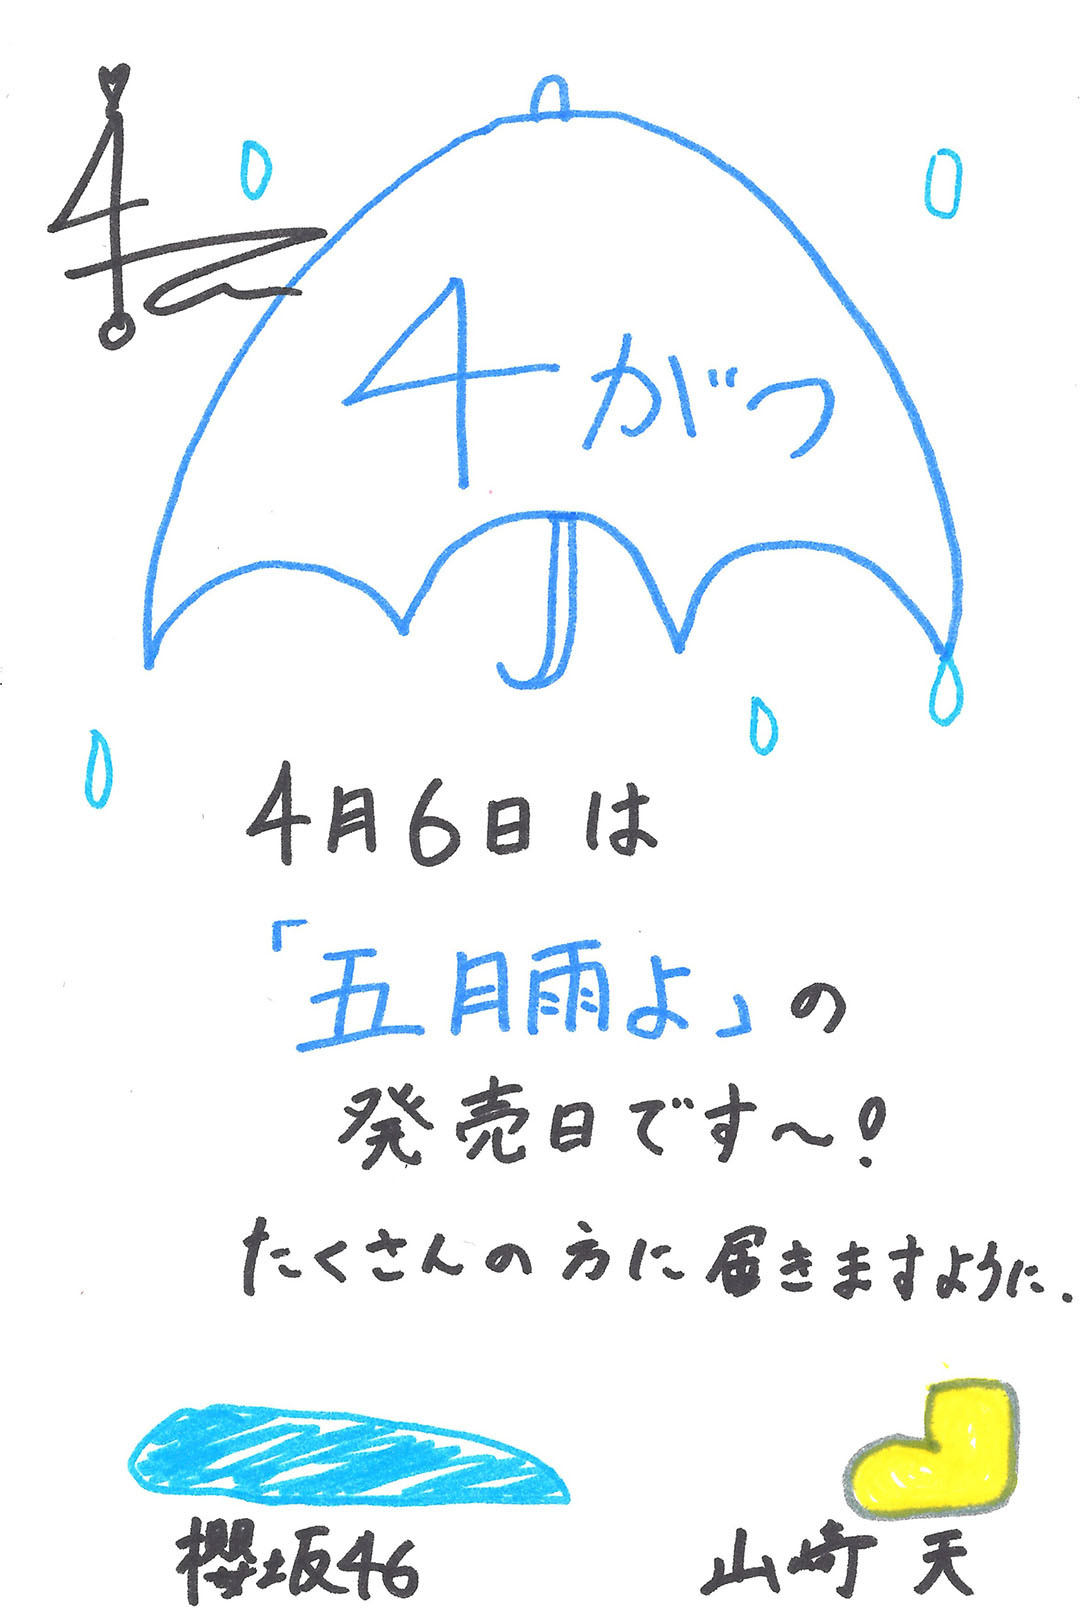 4がつ
4月6日は
「五月雨よ」の
発売日です〜!
たくさんの方に届きますように.
櫻坂46 山﨑 天